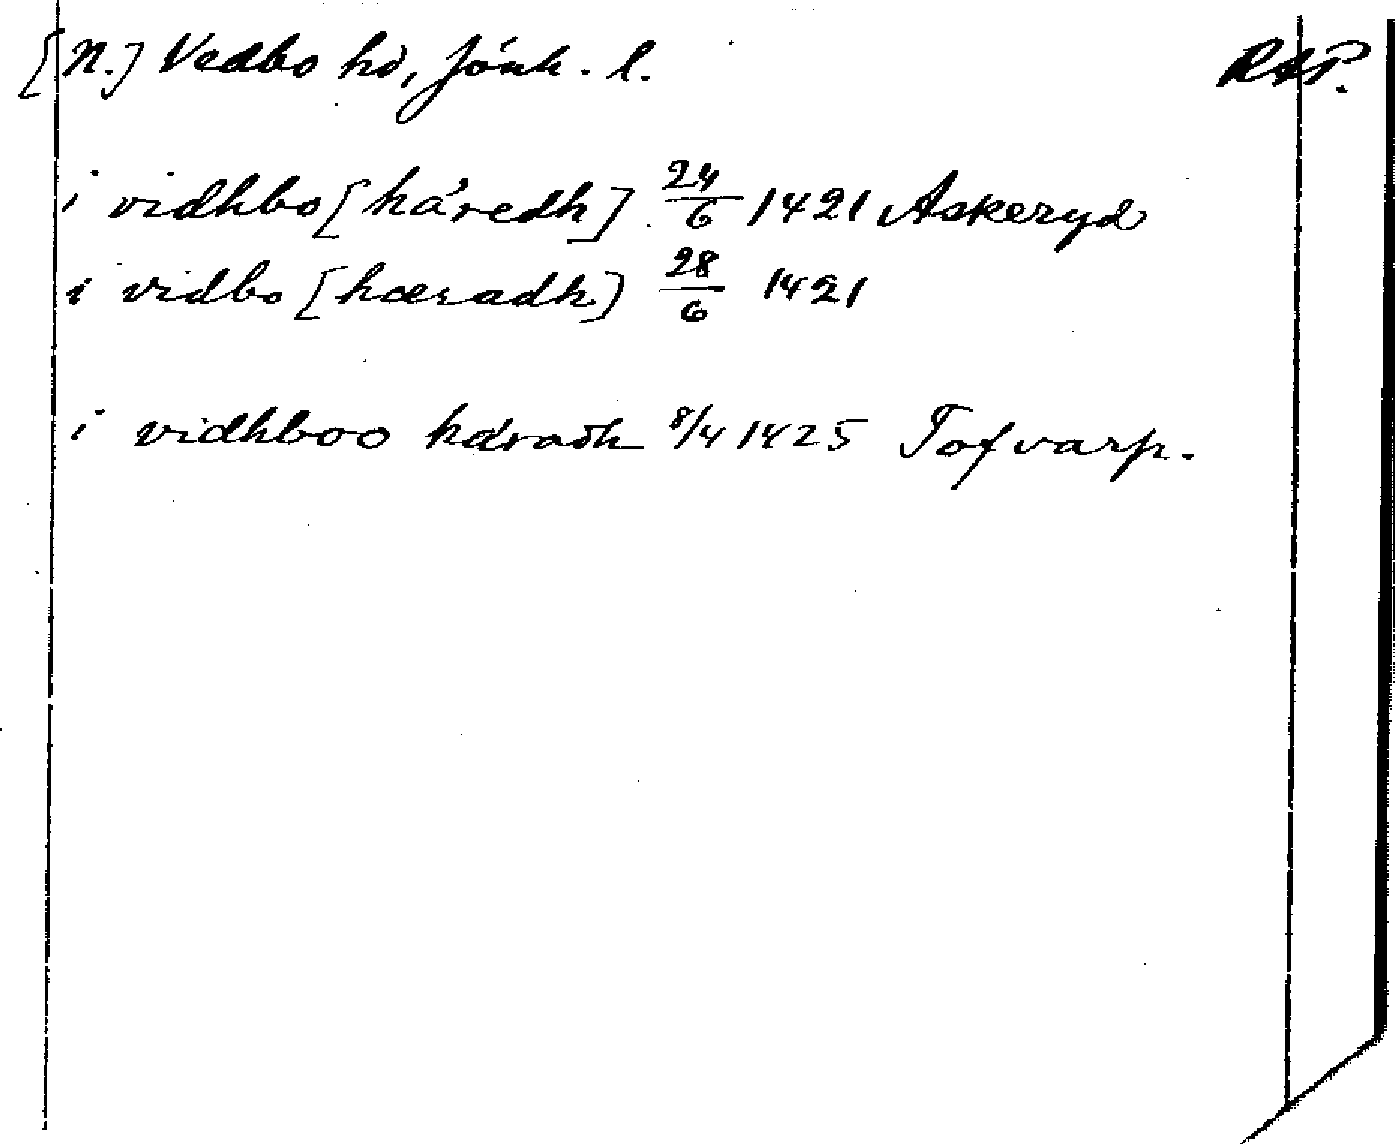 [N.] Vedbo hd, Jönk. l. RAP.
i vidhbo [håredh] 24/6 1421 Askeryd
i vidbo [hæradh] 28/6 1421
i vidhboo håradh 8/4 1425 Tofvarp.